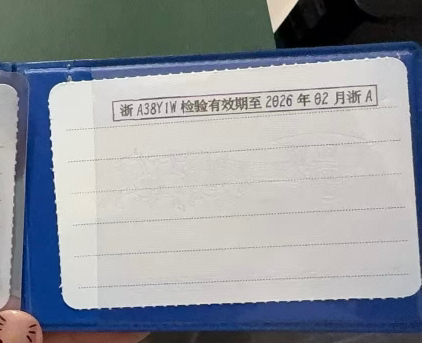 浙A38Y1W检验有效期至2026年02月浙A